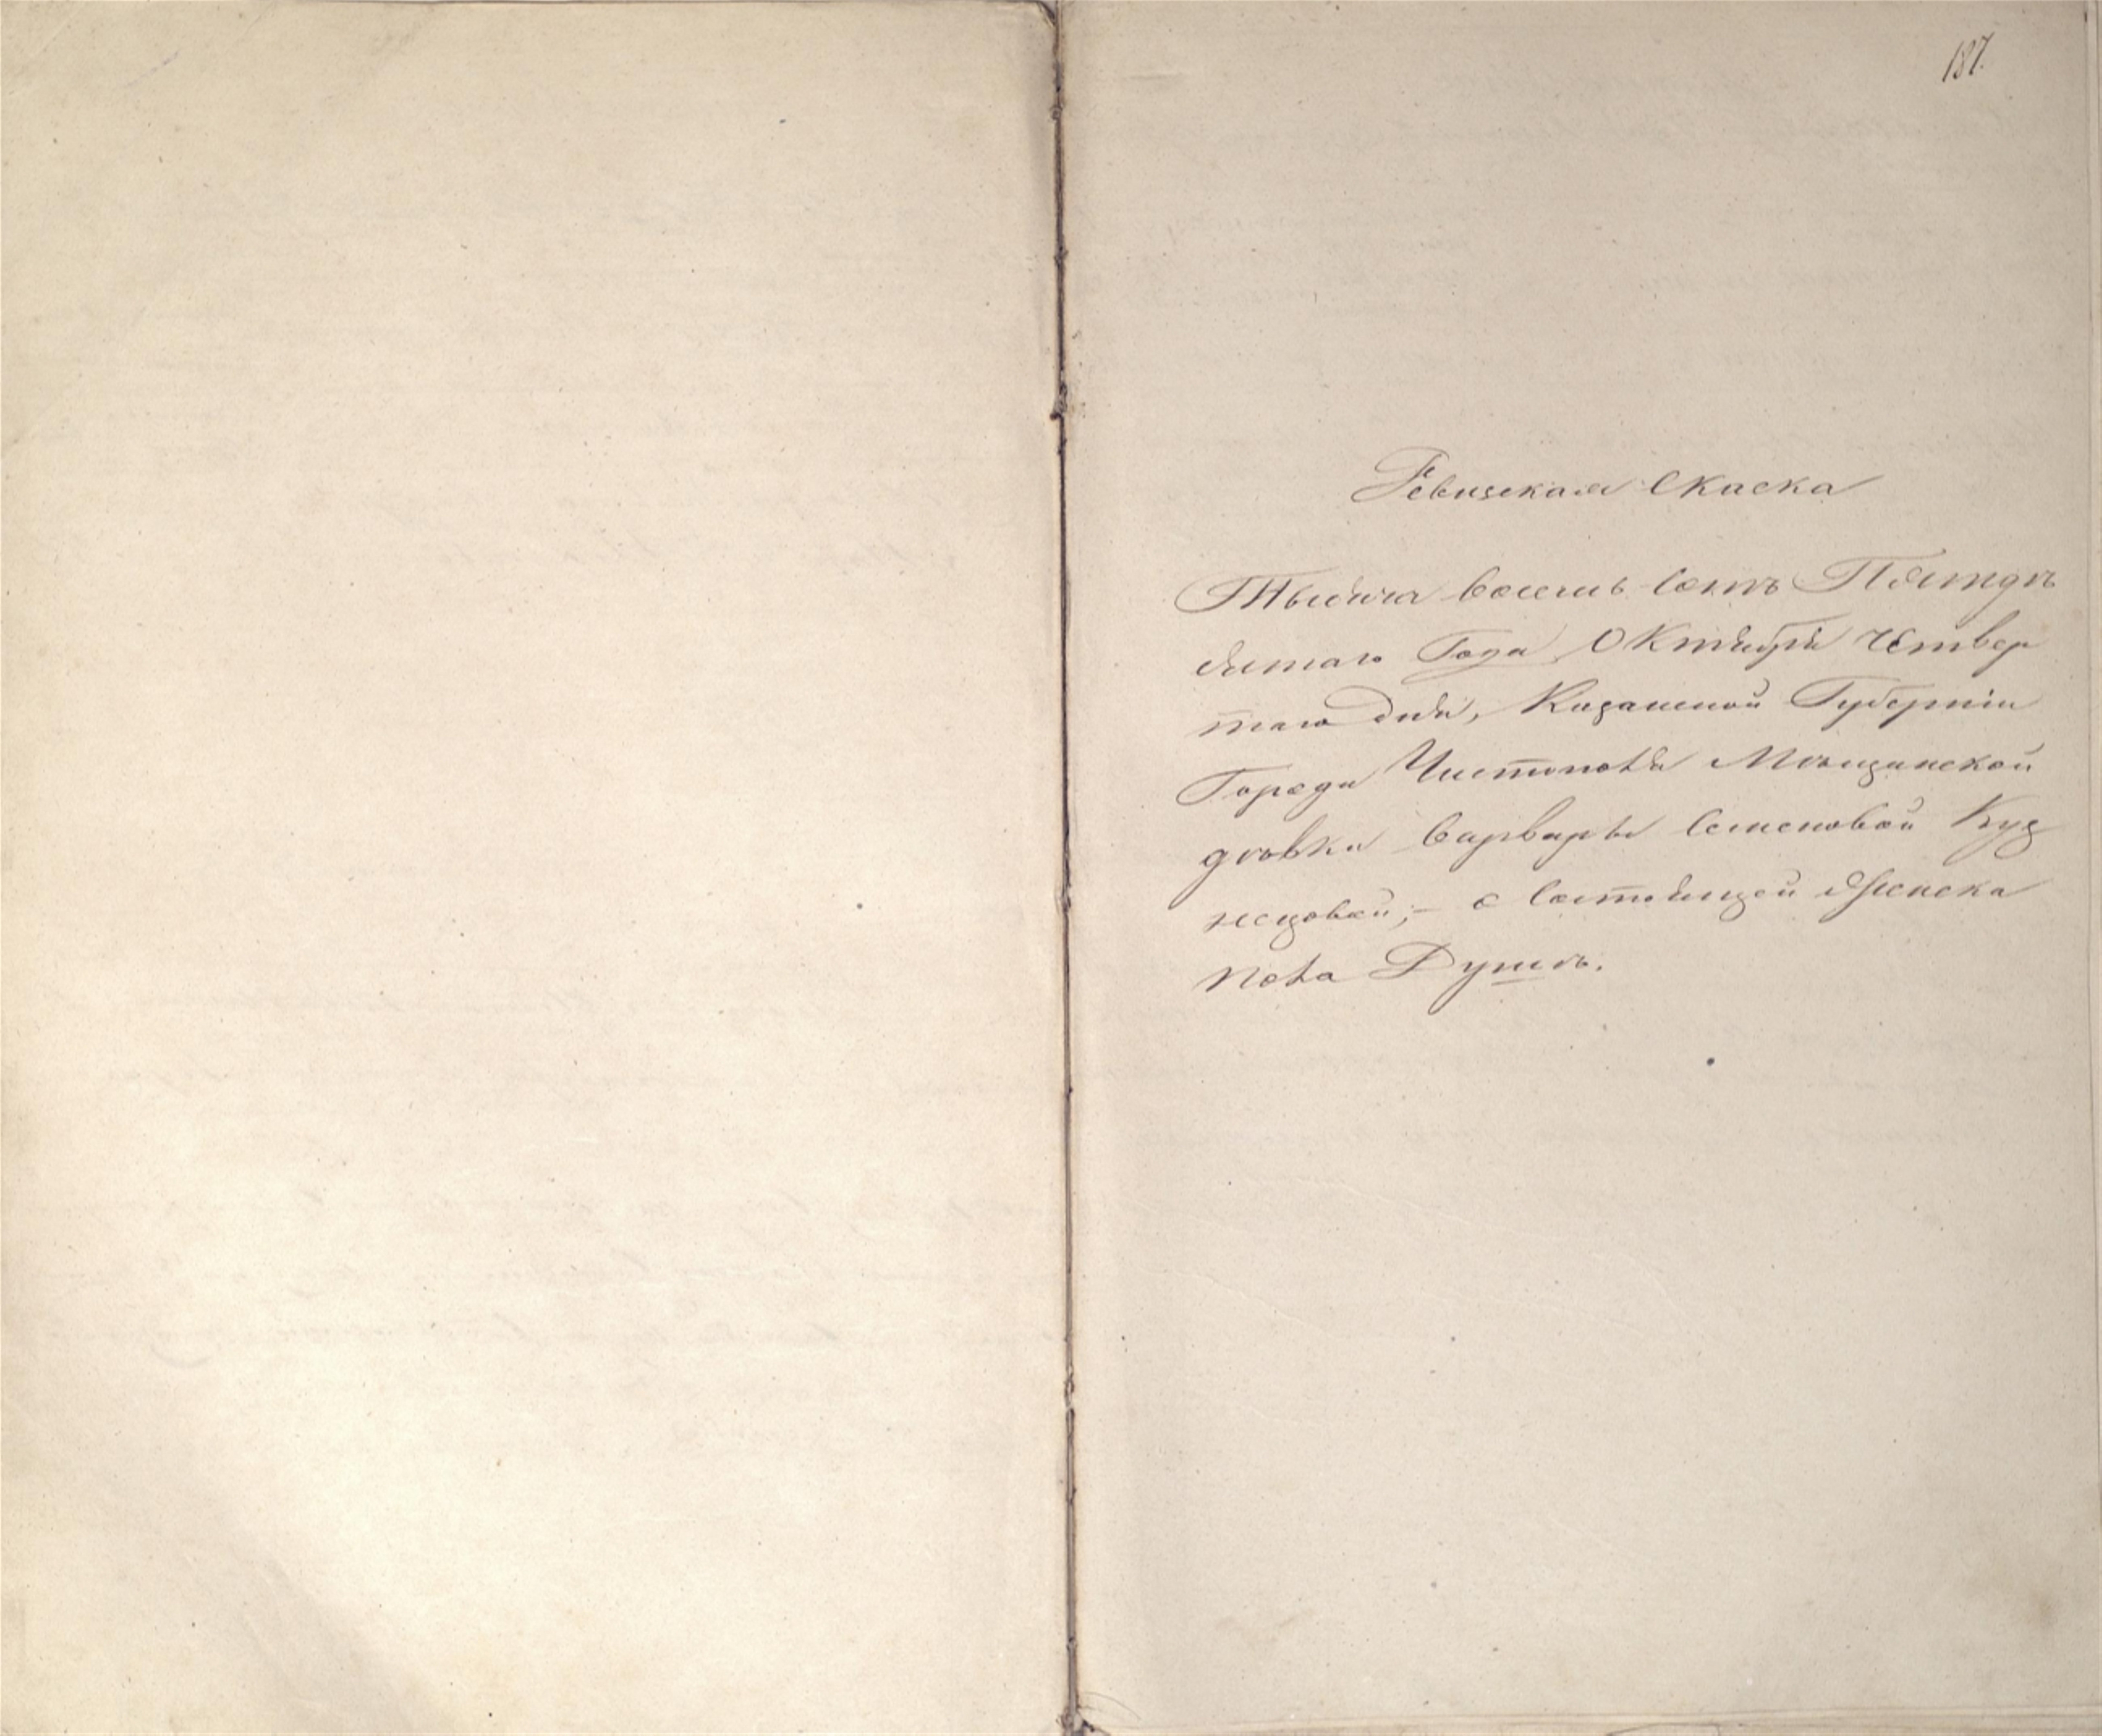 187.
Ревизская Скаска
Тысяча восемь сотъ Пятдѣ
сятаго Года Октября Четвер
таго дня, Казанской Губерніи
Города Чистополя Мѣщанской
дѣвки Варвары Семеновой Куз
нецовой;- о состоящей Женска
пола Душѣ.